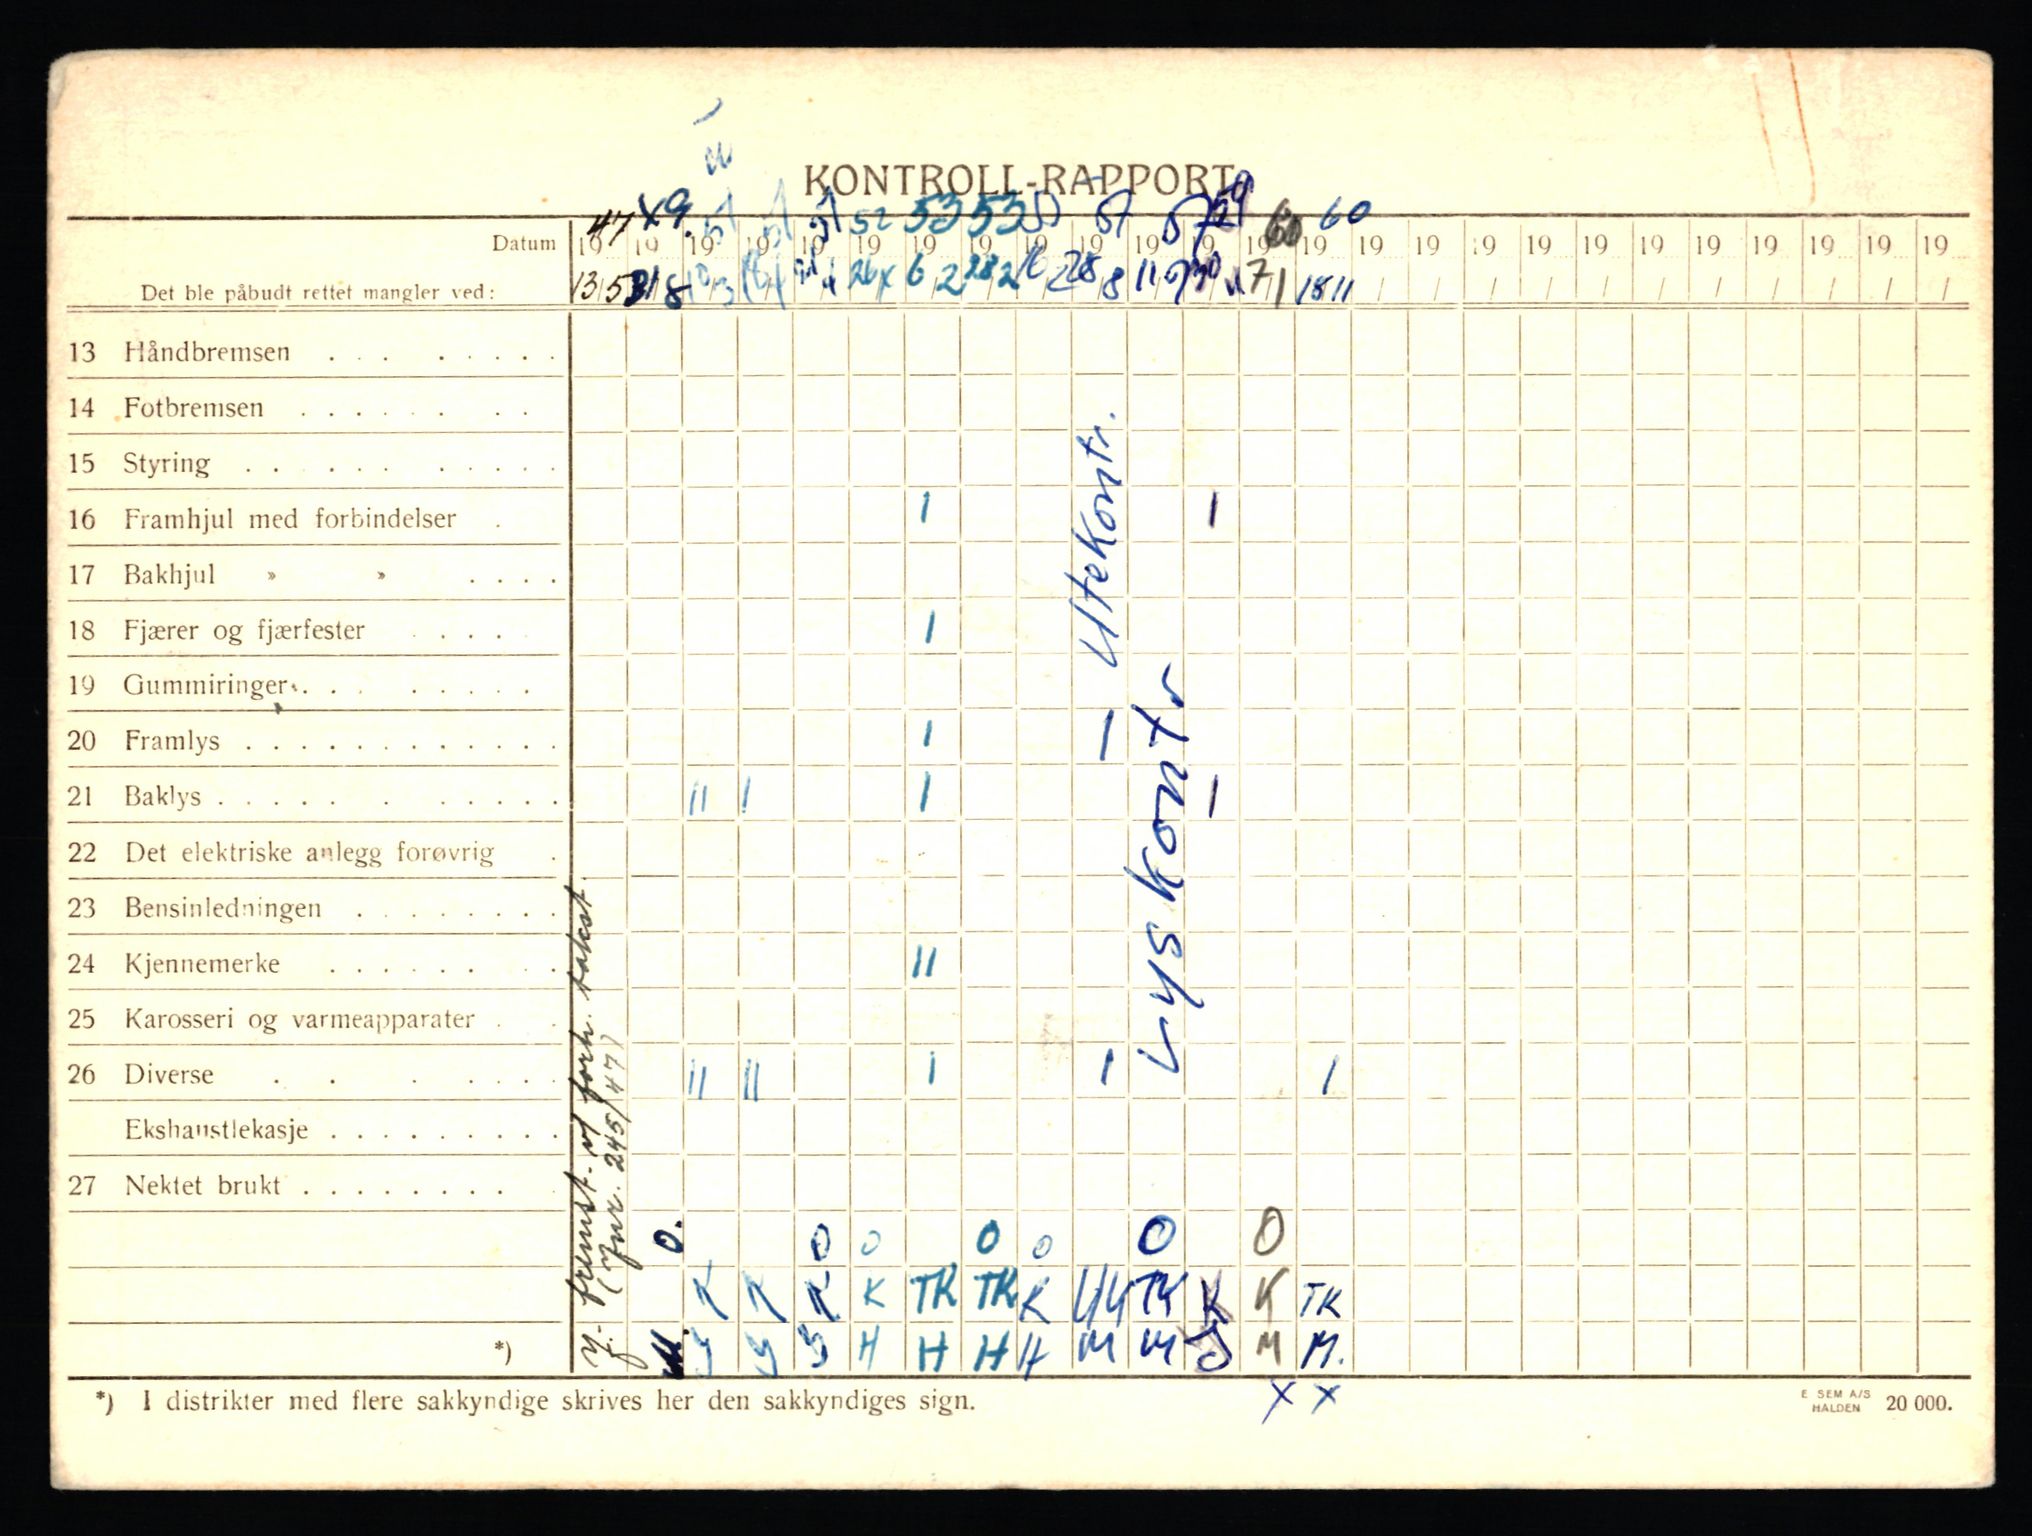 KONTROLL-RAPPORT
47 49. 51 51 51 52 53 53 57 57 59 60 60
Datum 19 19 19 19 19 19 19 19 19 19 19 19 19 19 19 19 19 19 19 19 19 19 19 19 19
Det ble påbudt rettet mangler ved: 13/5 31/8 10/3 26/ 6/2 28/2 28/8 7/1 18/11
13 Håndbremsen . . . . . . . .
14 Fotbremsen . . . . . . . .
15 Styring . . . . . . . . . .
16 Framhjul med forbindelser . I I
17 Bakhjul » » . . . .
18 Fjærer og fjærfester . . . . I
19 Gummiringer . . . . . . . .
20 Framlys . . . . . . . . . . . . . I I
21 Baklys . . . . . . . . . . . . II I I I
22 Det elektriske anlegg forøvrig .
23 Bensinledningen . . . . . . . .
24 Kjennemerke . . . . . . . . II
25 Karosseri og varmeapparater . .
26 Diverse . . . . . . . II II I I I
Ekshaustlekasje . . . . . . . . .
27 Nektet brukt . . . . . . . .
Utekontr.
Lyskontr
fremst. forh. takst.
(Jnr. 245/47)
O. O O O O O O
K K K K TK TK K UK TK K K TK
*) H H H H M M M M.
*) I distrikter med flere sakkyndige skrives her den sakkyndiges sign.
x x
E SEM A/S
HALDEN 20 000.